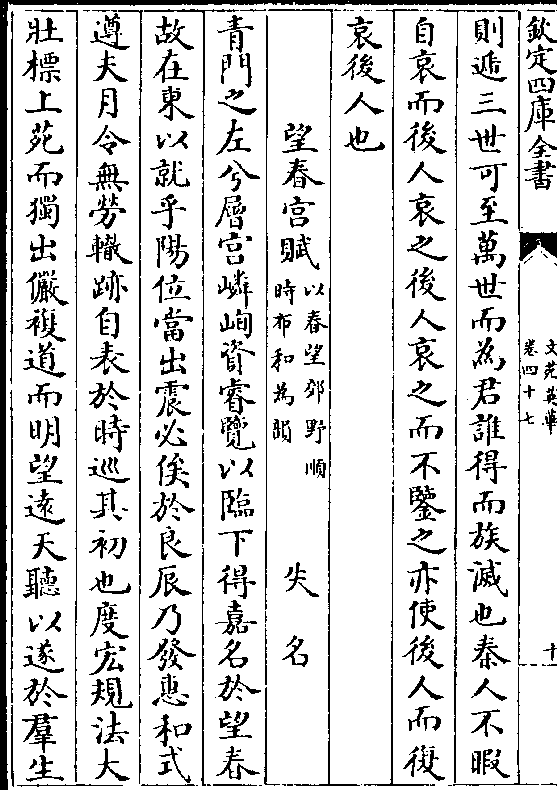 欽定四庫全書
文苑英華
卷四十七
十
則遞三世可至萬世而為君誰得而族滅也秦人不暇
自哀而後人哀之後人哀之而不鑒之亦使後人而復
哀後人也
望春宫賦以春望郊野順時布和為韻 失名
青門之左兮層宫嶙峋資睿覽以臨下得嘉名於望春
故在東以就乎陽位當出震必俟於良辰乃發惠和式
遵夫月令無勞轍跡自表於時巡其初也度宏規法大
壯標上苑而獨出儼複道而明望遠天聽以遂於羣生